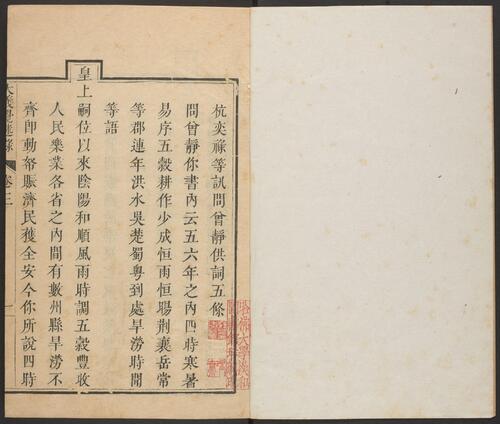 杭奕祿等訊問曾靜供詞五條
問曾靜你書內云五六年之內四時寒暑
易序五穀耕作少成恒雨恒暘荆襄岳常
等郡連年洪水吳楚蜀粵到處旱澇時聞
等語
皇上嗣位以來陰陽和順風雨時調五穀豐收
人民樂業各省之內間有數州縣旱澇不
齊即動帑賑濟民獲全安今你所說四時
大義覺迷錄
卷三
一